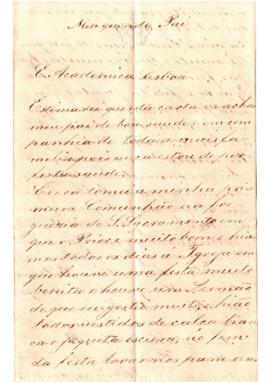 Meu querido Pai
E. Academica Lisboa
Estimarei que esta carta vá achar
meu pai de boa saude e em com
panhia de toda a mais fa
milia pois eu cá estou de per
feita saude.
Eu cá tomei a minha pri
meira Comunhão na fre
guezia do S. Sacramento em
que o Prior é muito bom e hia
mos todos os dias a Igreja em
que houve uma festa muito
bonita e houve um Sermão
de que eu gostei muito, e hião
todos vestidos de calça bran
ca e jaqueta escura; no fim
da festa levar nos para